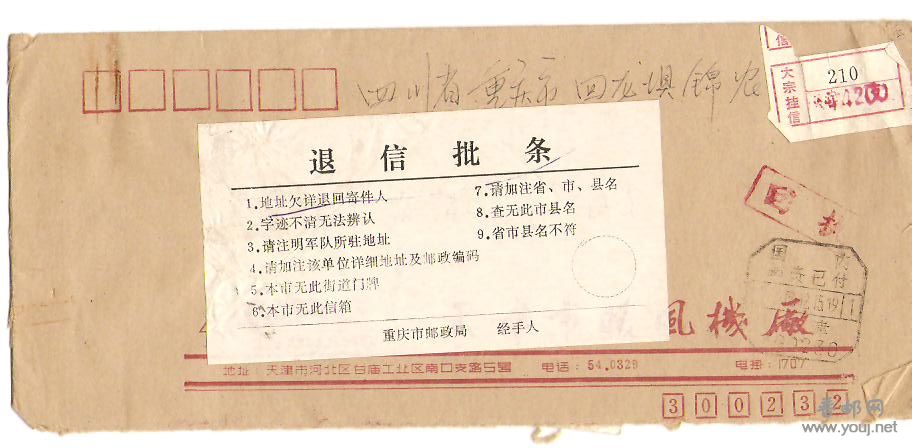 四川省重庆市回龙坝锦农
大宗挂信
210
4200
退信批条
1.地址欠详退回寄件人
2.字迹不清无法辨认
3.请注明军队所驻地址
4.请加注该单位详细地址及邮政编码
5.本市无此街道门牌
6.本市无此信箱
7.请加注省、市、县名
8.查无此市县名
9.省市县名不符
重庆市邮政局 经手人
國内
邮资已付
風機廠
地址：天津市河北区白庙工业区南口支路5号 电话：54.0329 电挂：1707
300232
www.youj.net